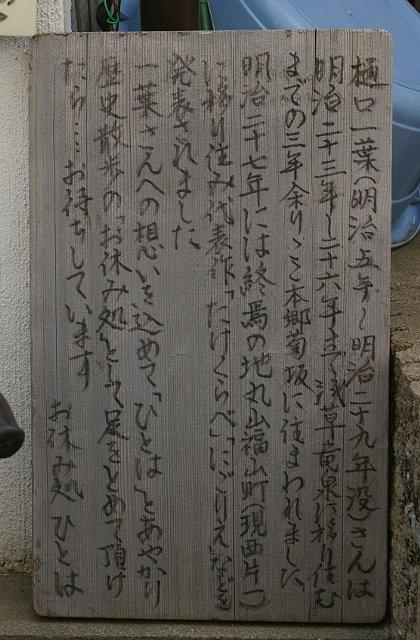 樋口一葉(明治五年～明治二十九年没)さんは
明治二十三年～二十六年まで浅草竜泉に移り住む
までの三年余り、ここ本郷菊坂に住まわれました
明治二十七年には終焉の地丸山福山町(現西片一)
に移り住み代表作「たけくらべ」「にごりえ」などを
発表されました
一葉さんへの想いを込めて「ひとは」とあやかり
歴史散歩の「お休み処」として足をとめて頂け
たら…お待ちしています
お休み処ひとは